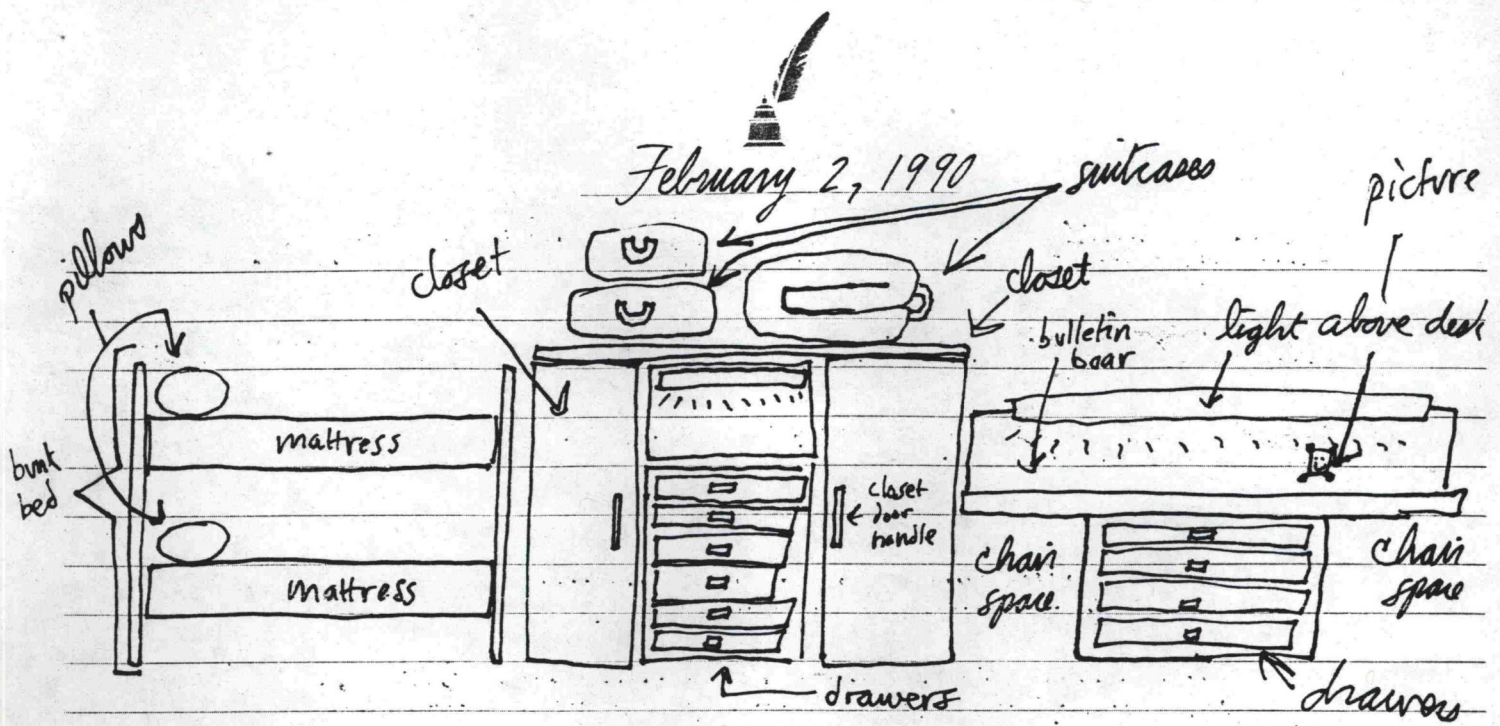 February 2, 1990
suitcases
picture
pillows
closet
closet
bulletin
boar
light above desk
mattress
bunk
bed
closet
door
handle
chair
space
chair
space
mattress
drawers
drawers